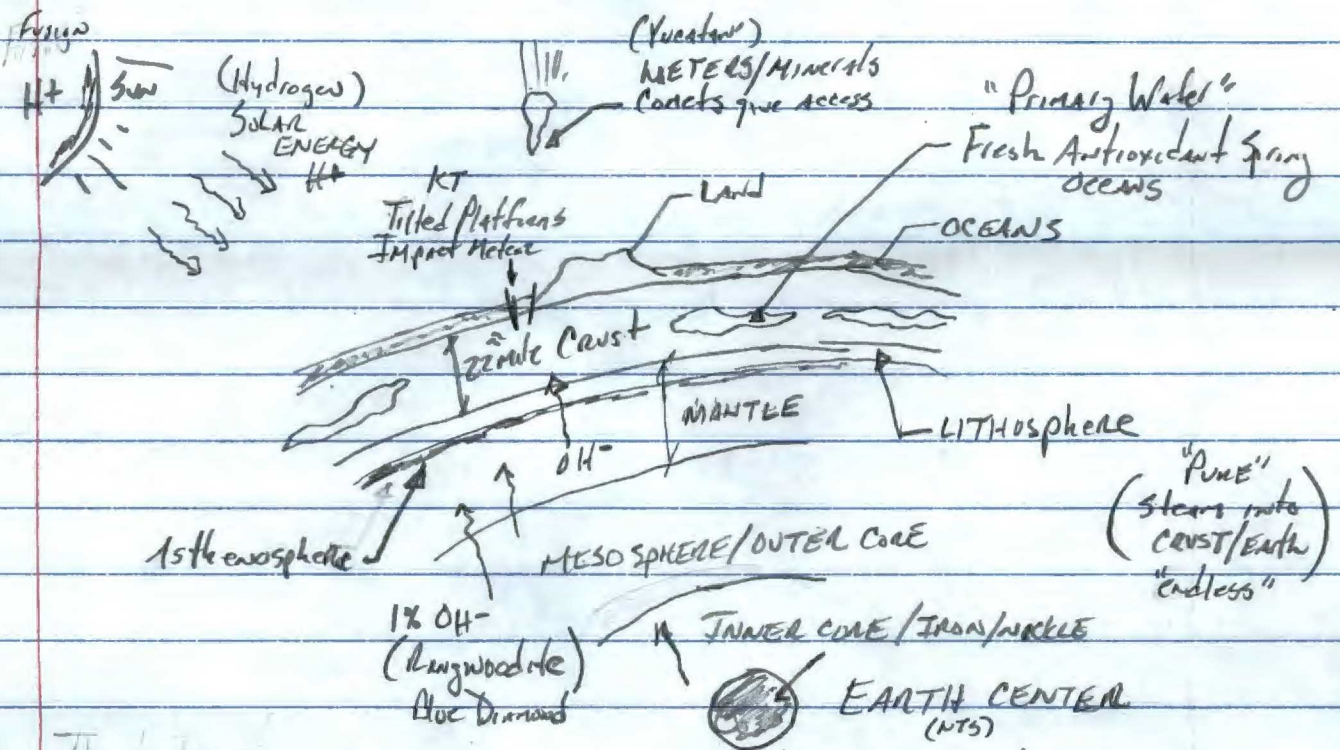 Fusion
H+
Sun
(Hydrogen)
SOLAR
ENERGY
H+
(Yucatan)
METERS/Minerals
Comets give access
"Primary Water"
Fresh Antioxidant Spring
OCEANS
KT
Tilted Platforms
Impact Meteor
LAND
OCEANS
≈
22 mile Crust
MANTLE
LITHosphere
OH-
"PURE"
Steam into
CRUST/Earth
"endless"
Asthenosphere
MESOSPHERE/OUTER CORE
1% OH-
(Ringwoodite
Blue Diamond)
INNER CORE/IRON/NICKLE
EARTH CENTER
(NTS)